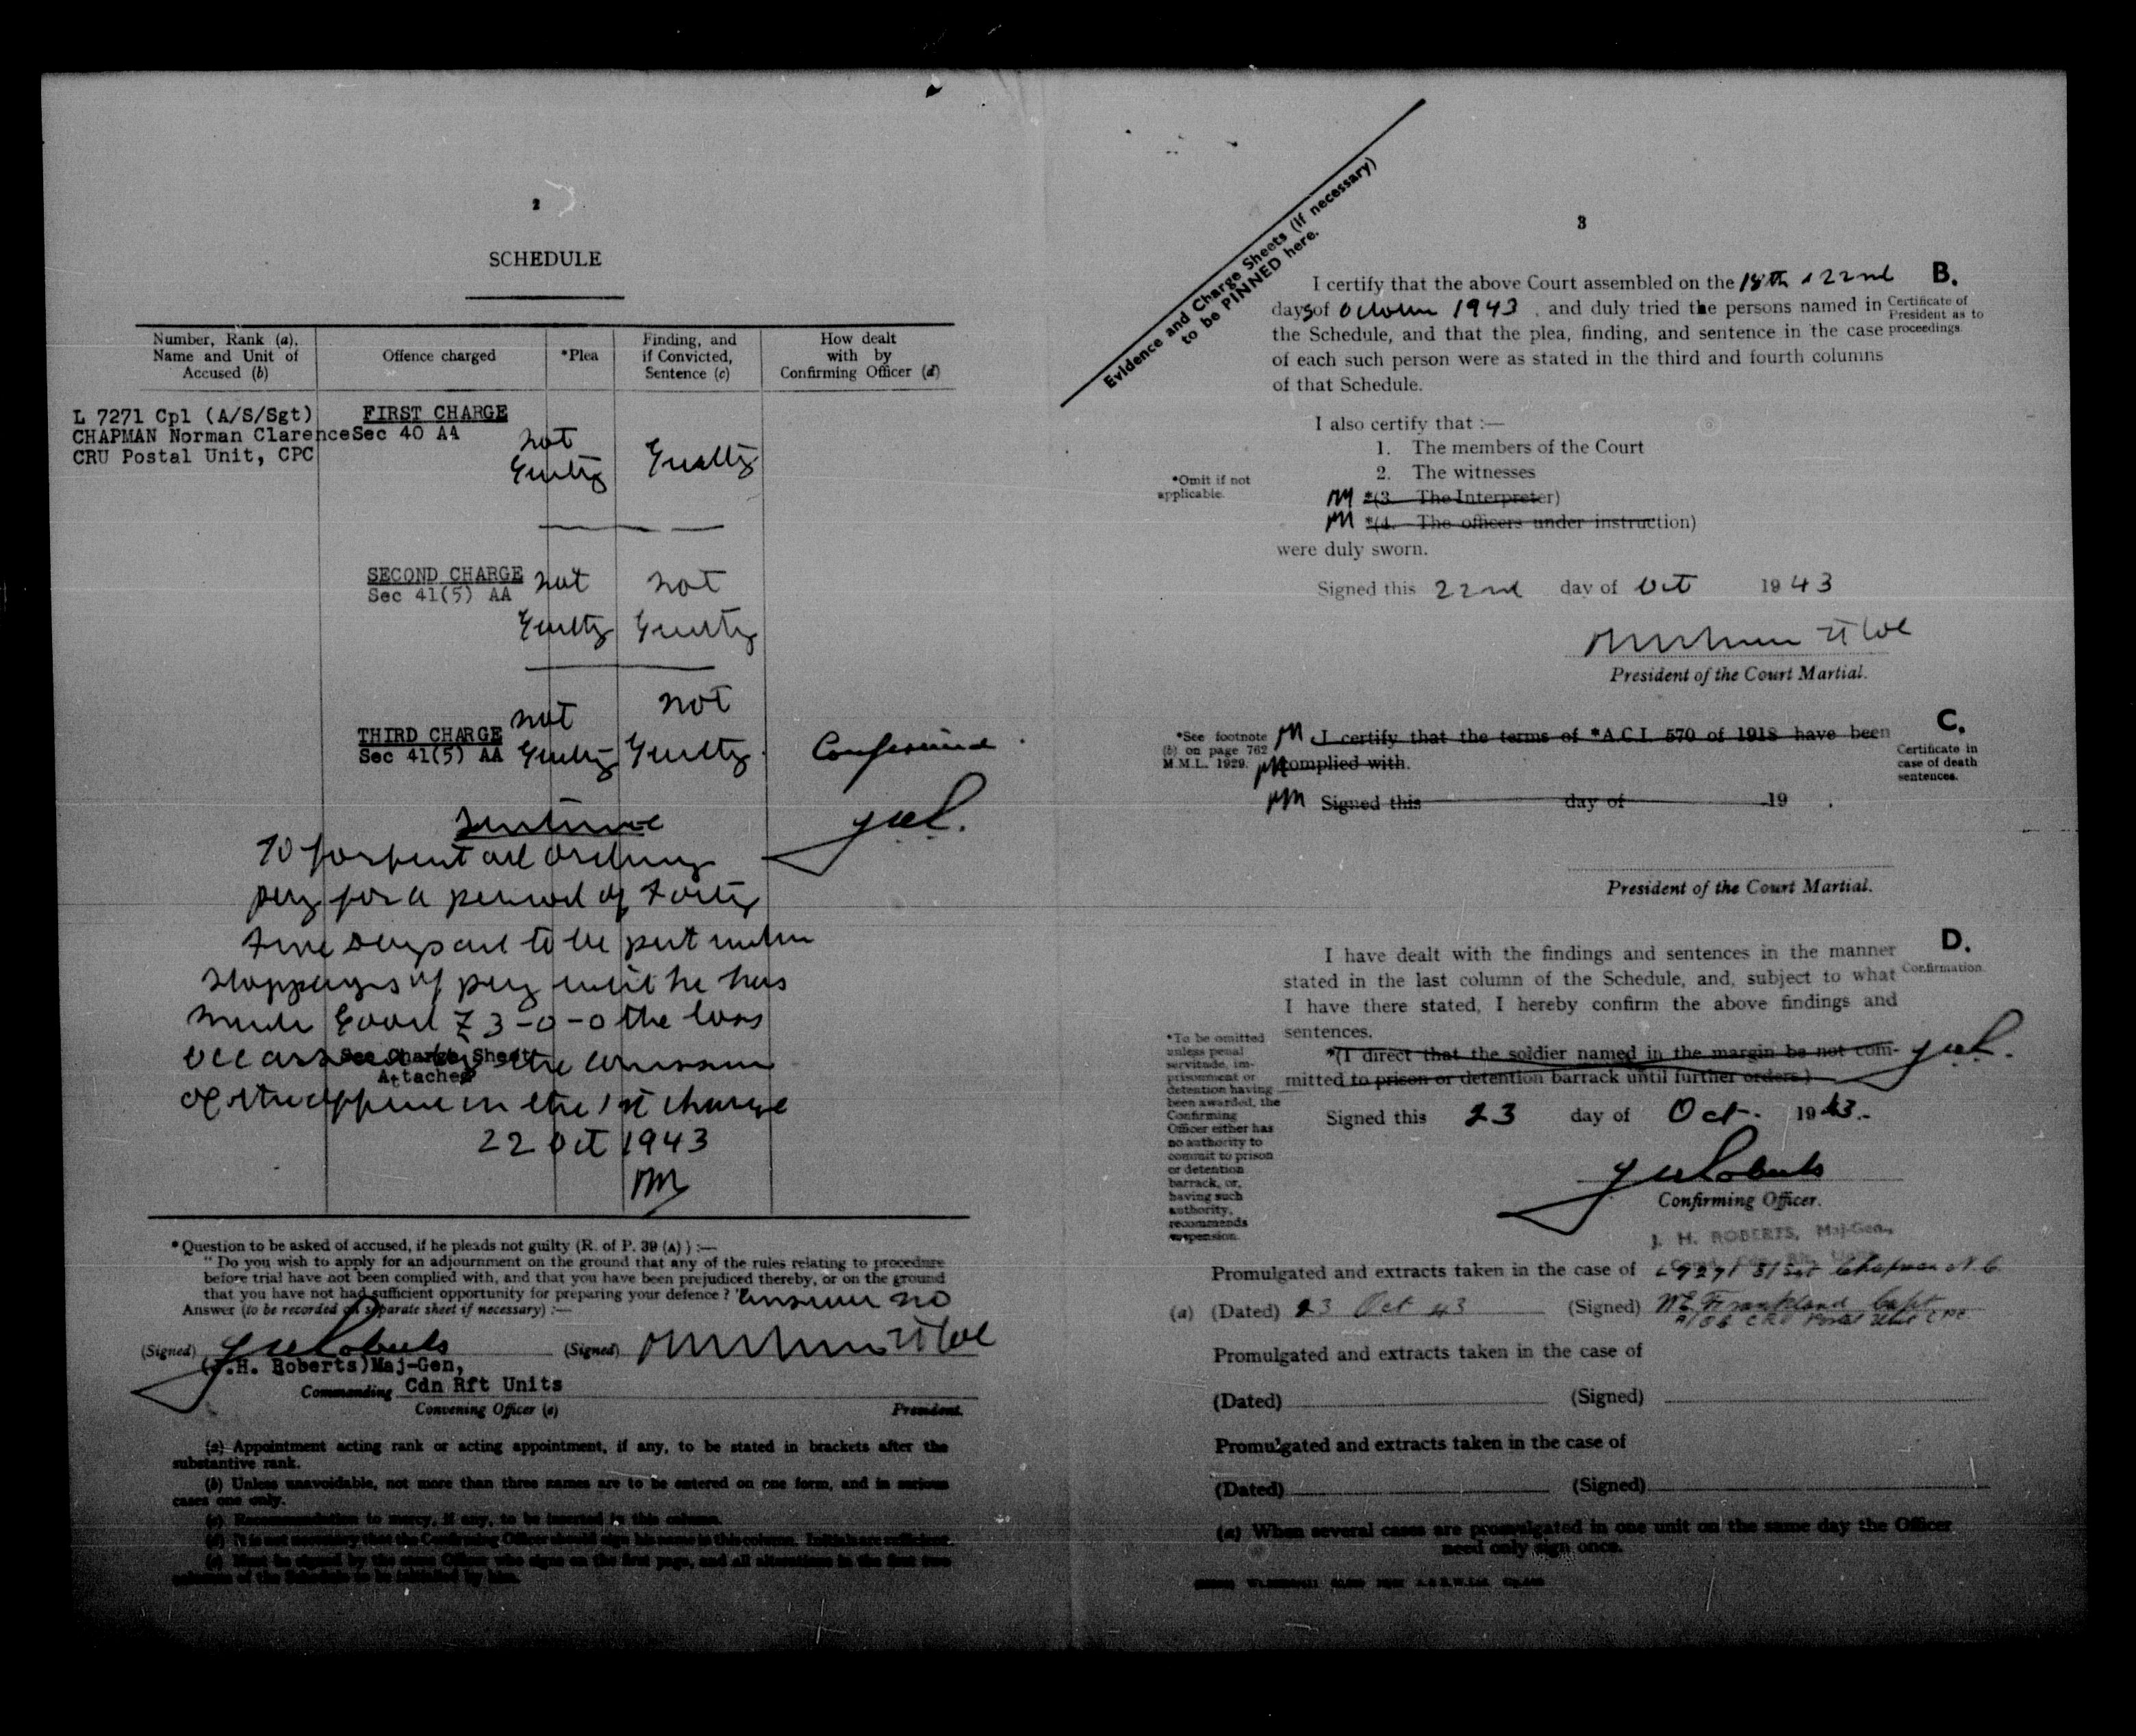 2
SCHEDULE
Number, Rank (a), Name and Unit of Accused (b)
Offence charged
*Plea
Finding, and if Convicted, Sentence (c)
How dealt with by Confirming Officer (d)
L 7271 Cpl (A/S/Sgt)
CHAPMAN Norman Clarence
CRU Postal Unit, CPC
FIRST CHARGE
Sec 40 AA
not
Guilty
Guilty
SECOND CHARGE
Sec 41(5) AA
not
Guilty
not
Guilty
THIRD CHARGE
Sec 41(5) AA
not
Guilty
not
Guilty
Confirmed
Sentence
To forfeit all ordinary
pay for a period of Forty
Five Days and to be put under
stoppages of pay until he has
made Good £ 3-0-0 the loss
occasioned by the commission
See Charge Sheet
Attached
of the offence in the 1st charge
22 Oct 1943
*Question to be asked of accused, if he pleads not guilty (R. of P. 39 (A) ) :—
" Do you wish to apply for an adjournment on the ground that any of the rules relating to procedure
before trial have not been complied with, and that you have been prejudiced thereby, or on the ground
that you have not had sufficient opportunity for preparing your defence ? " answer no
Answer (to be recorded on separate sheet if necessary) :—
(Signed) J H Roberts (Signed) Lt Col
(J.H. Roberts)Maj-Gen,
Commanding Cdn Rft Units
Convening Officer (e) President.
(a) Appointment acting rank or acting appointment, if any, to be stated in brackets after the
substantive rank.
(b) Unless unavoidable, not more than three names are to be entered on one form, and in serious
cases one only.
(c) Recommendation to mercy, if any, to be inserted in this column.
(d) It is not necessary that the Confirming Officer should sign his name in this column. Initials are sufficient.
(e) Must be signed by the same Officer who signs on the first page, and all alterations in the first two
columns of the Schedule to be initialled by him.
Evidence and Charge Sheets (If necessary)
to be PINNED here.
3
I certify that the above Court assembled on the 18th & 22nd
days of October 1943, and duly tried the persons named in
the Schedule, and that the plea, finding, and sentence in the case
of each such person were as stated in the third and fourth columns
of that Schedule.
B.
Certificate of
President as to
proceedings.
I also certify that :—
1. The members of the Court
2. The witnesses
*Omit if not
applicable.
*(3. The Interpreter)
*(4. The officers under instruction)
were duly sworn.
Signed this 22nd day of Oct 1943
Lt Col
President of the Court Martial.
*See footnote
(b) on page 762
M.M.L. 1929.
I certify that the terms of *A.C.I. 570 of 1918 have been
complied with.
C.
Certificate in
case of death
sentences.
Signed this day of 19 .
President of the Court Martial.
D.
Confirmation.
I have dealt with the findings and sentences in the manner
stated in the last column of the Schedule, and, subject to what
I have there stated, I hereby confirm the above findings and
sentences.
*To be omitted
unless penal
servitude, im-
prisonment or
detention having
been awarded, the
Confirming
Officer either has
no authority to
commit to prison
or detention
barrack, or,
having such
authority,
recommends
suspension.
*(I direct that the soldier named in the margin be not com-
mitted to prison or detention barrack until further orders.)
Signed this 23 day of Oct. 1943.-
J H Roberts
Confirming Officer.
J. H. ROBERTS, Maj-Gen.,
Promulgated and extracts taken in the case of L7271 S/Sgt Chapman N.C.
(a) (Dated) 23 Oct 43 (Signed) Frankland Capt
CRU Postal Unit CPC
Promulgated and extracts taken in the case of
(Dated) (Signed)
Promulgated and extracts taken in the case of
(Dated) (Signed)
(a) When several cases are promulgated in one unit on the same day the Officer
need only sign once.